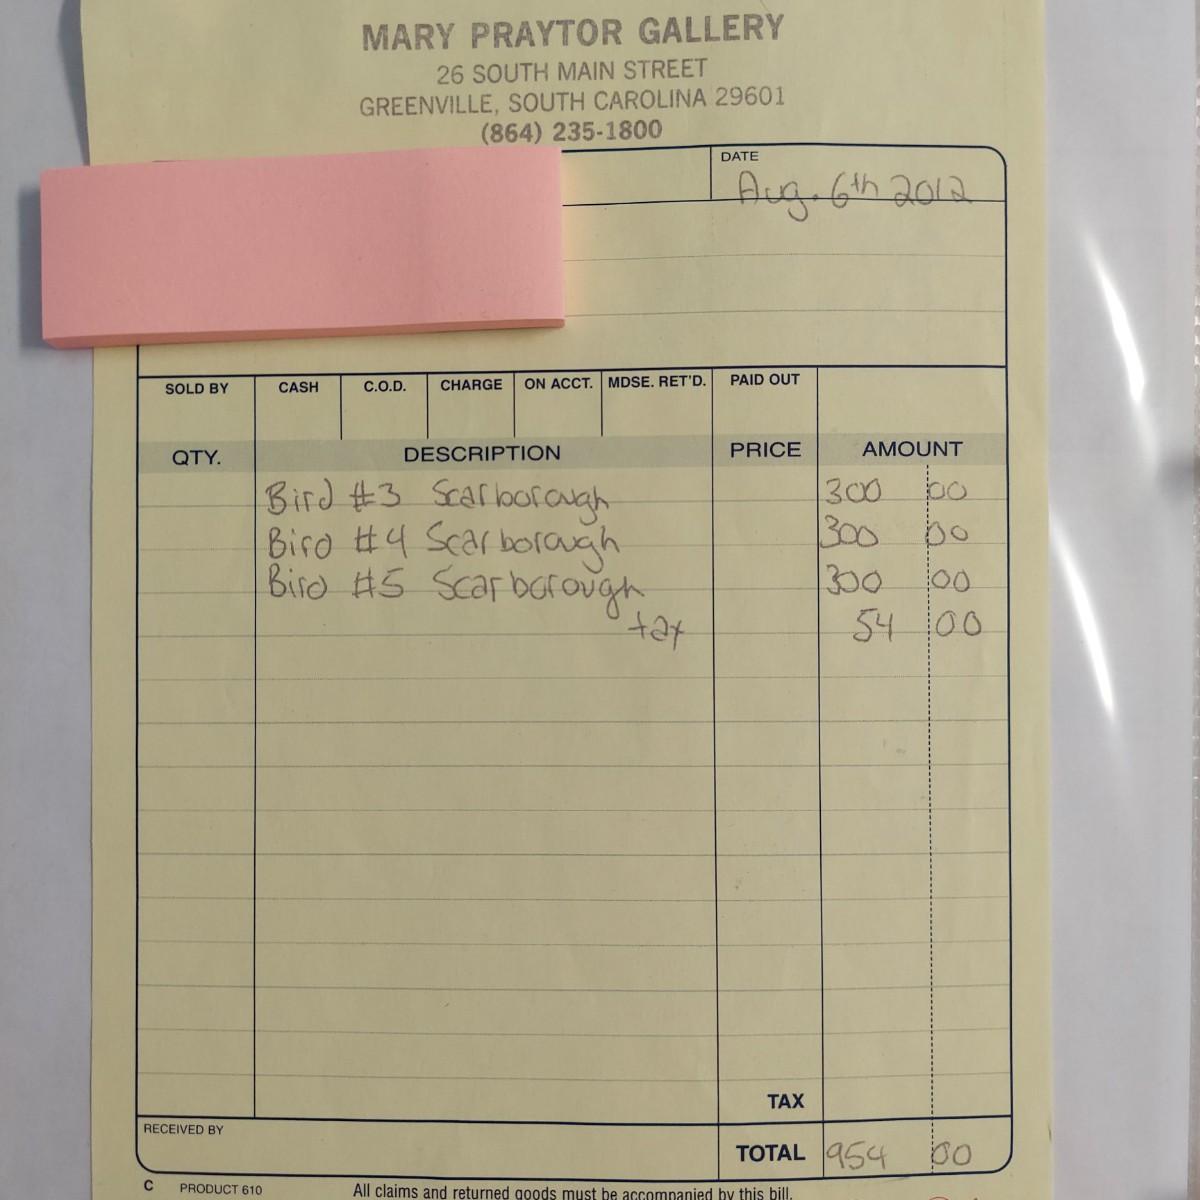 MARY PRAYTOR GALLERY
26 SOUTH MAIN STREET
GREENVILLE, SOUTH CAROLINA 29601
(864) 235-1800
DATE
Aug. 6th 2012
SOLD BY CASH C.O.D. CHARGE ON ACCT. MDSE. RET'D. PAID OUT
QTY. DESCRIPTION PRICE AMOUNT
Bird #3 Scarborough 300 00
Bird #4 Scarborough 300 00
Bird #5 Scarborough 300 00
tax 54 00
TAX
RECEIVED BY
TOTAL 954 00
C PRODUCT 610 All claims and returned goods must be accompanied by this bill.